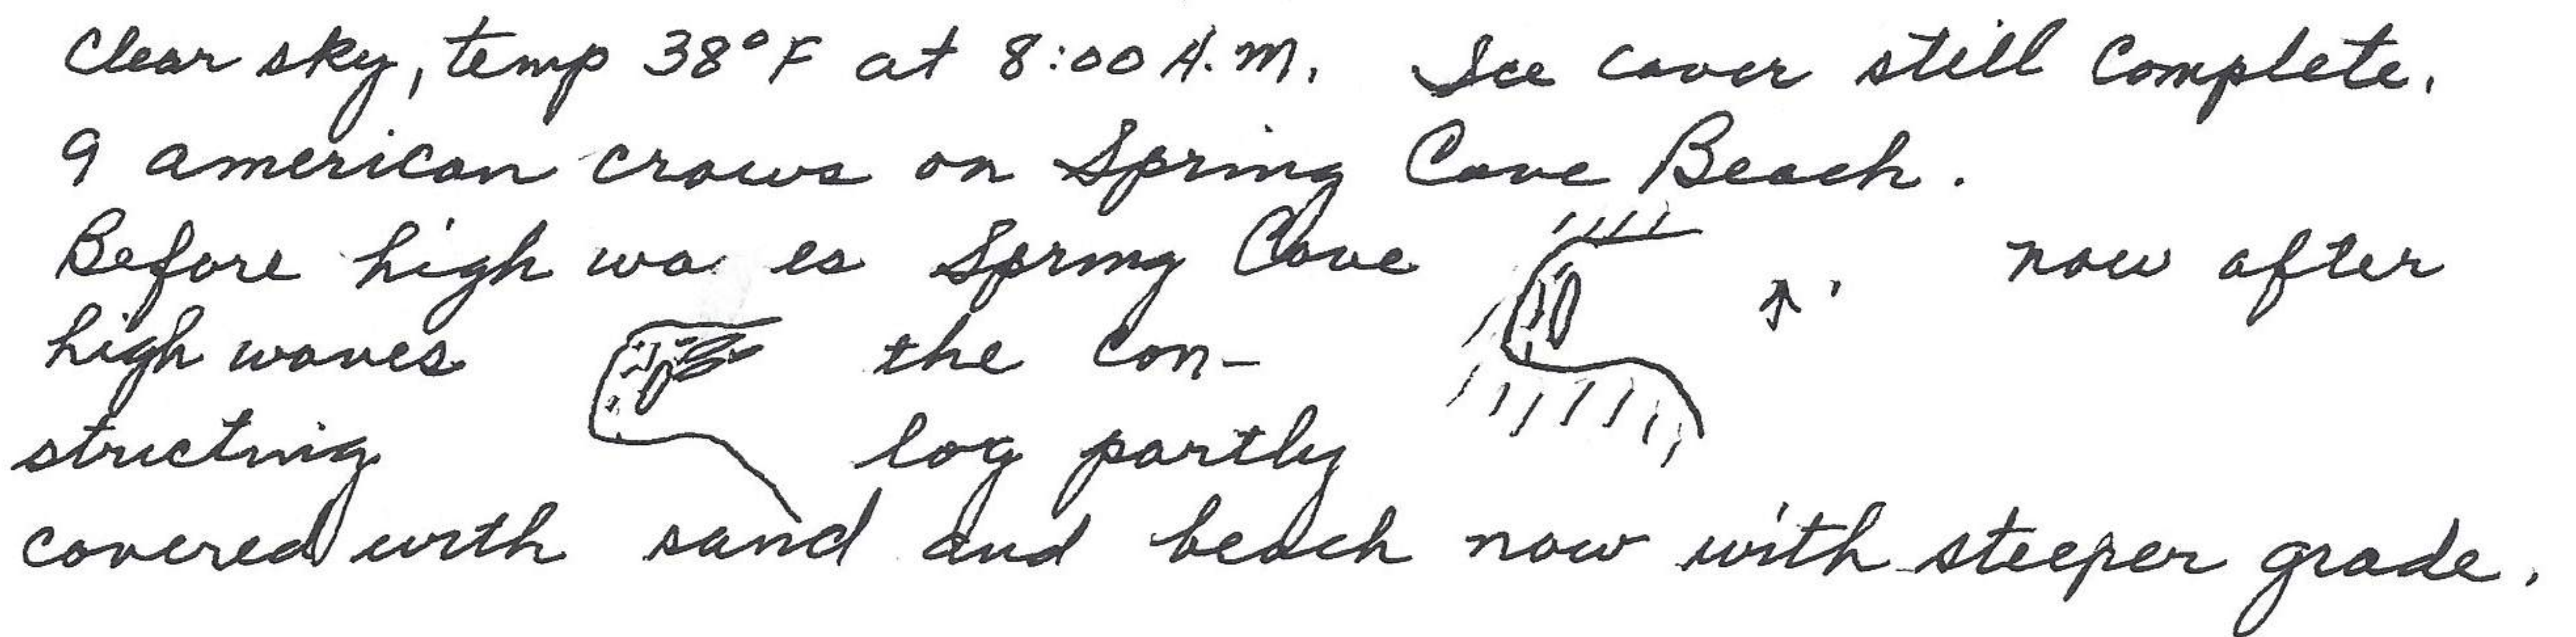 Clear sky, temp 38°F at 8:00 A.M. Ice cover still complete.
9 american crows on Spring Cove Beach.
Before high wa es Spring Cove now after
high waves the con-
structing log partly
covered with sand and beach now with steeper grade.